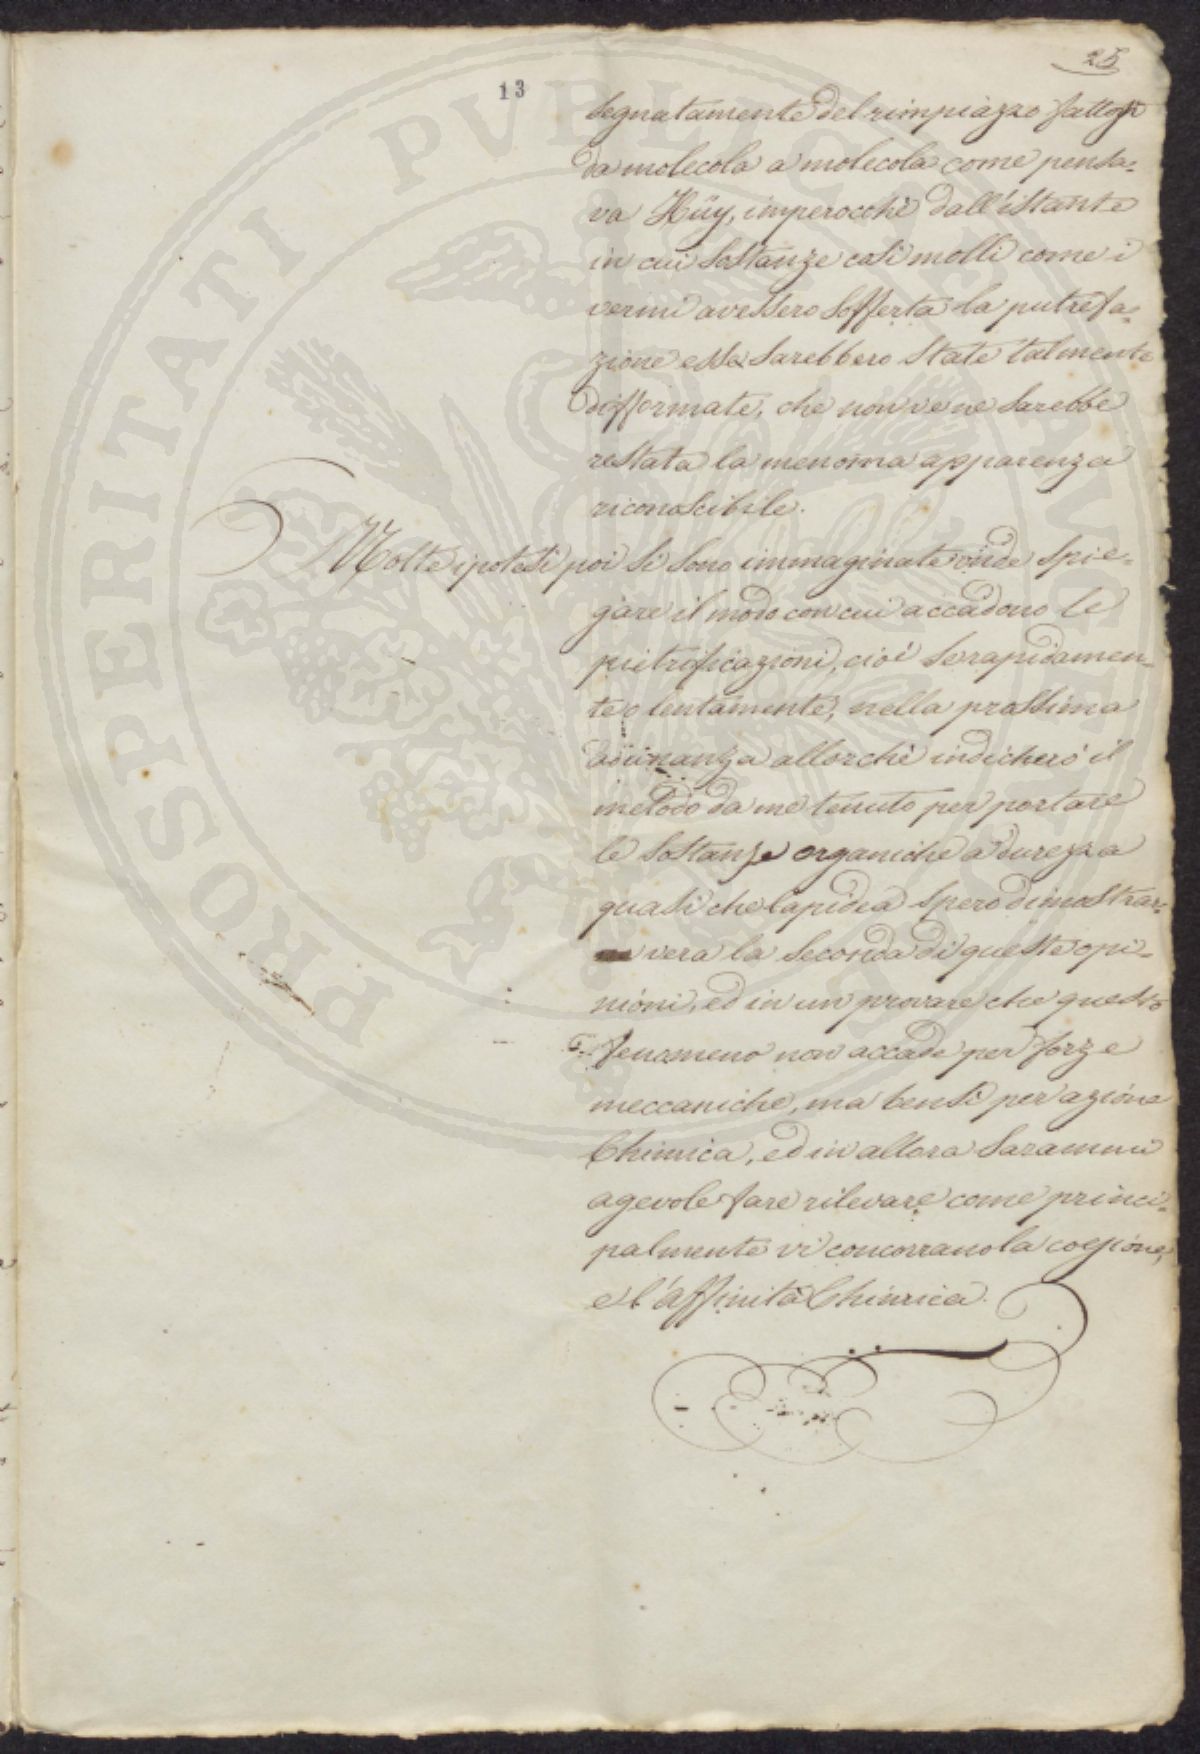 25
13
segnatamente del rimpiazzo fattosi
da molecola a molecola come pensa=
va Haüy, imperocchè dall'istante
in cui sostanze così molli come i
vermi avessero sofferta la putrefa=
zione esse sarebbero state talmente
difformate, che non ve ne sarebbe
restata la menoma apparenza
riconoscibile.
Molte ipotesi poi si sono immaginate onde spie=
gare il modo con cui accadono le
pietrificazioni, cioè se rapidamen=
te o lentamente, nella prossima
adunanza allorchè indicherò il
metodo da me tenuto per portare
le sostanze organiche a durezza
quasi che lapidea spero dimostrar=
vera la seconda di queste opi=
nioni, ed in un provare che questo
fenomeno non accade per forze
meccaniche, ma bensì per azione
Chimica, ed in allora sarammi
agevole fare rilevare come princi=
palmente vi concorrano la coesione,
e l'affinità Chimica.
PROSPERITATI PVBLICAE AVGENDAE